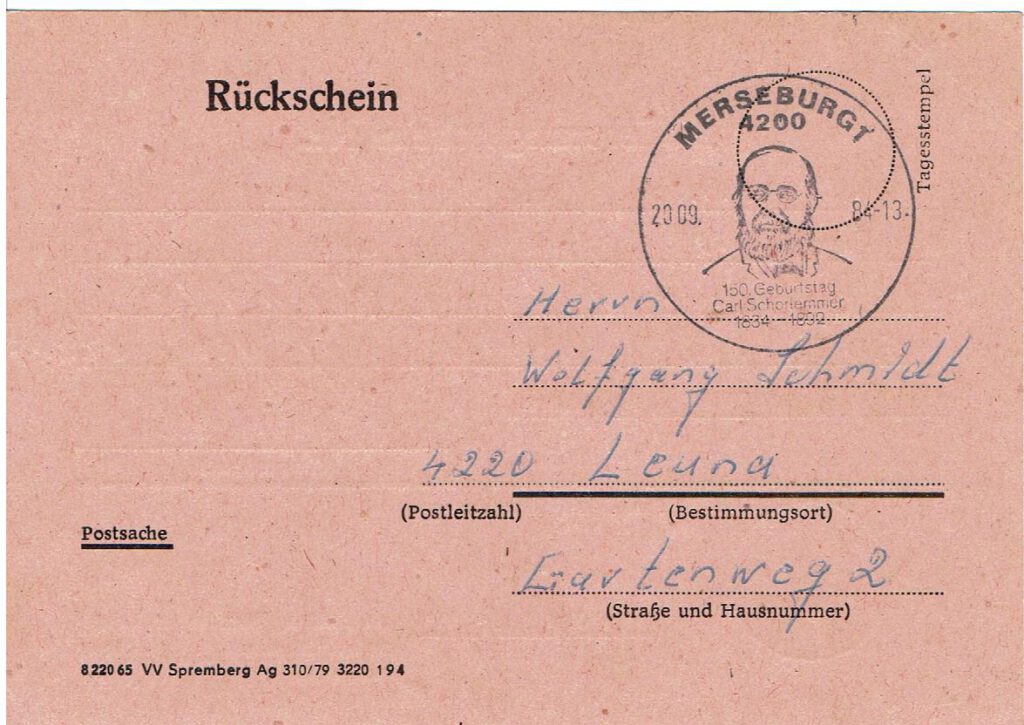 Rückschein
MERSEBURG 1
4200
20 09. 84-13
150. Geburtstag
Carl Schorlemmer
1834 - 1892
Tagesstempel
Herrn
Wolfgang Schmidt
4220 Leuna
(Postleitzahl) (Bestimmungsort)
Postsache
Gartenweg 2
(Straße und Hausnummer)
8 220 65 VV Spremberg Ag 310/79 3220 1 9 4